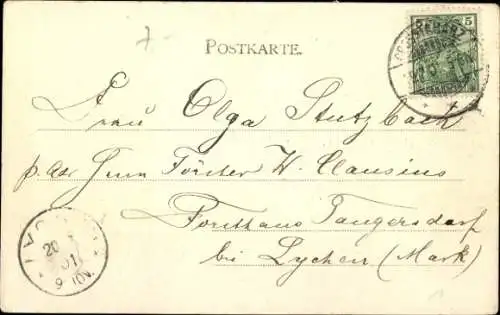 5
POSTKARTE.
Frau Olga Stutzbach
p. adr Herrn Förster W. Clausius
Forsthaus Tangersdorf
bei Lychen (Mark)
20
01
9-10V.